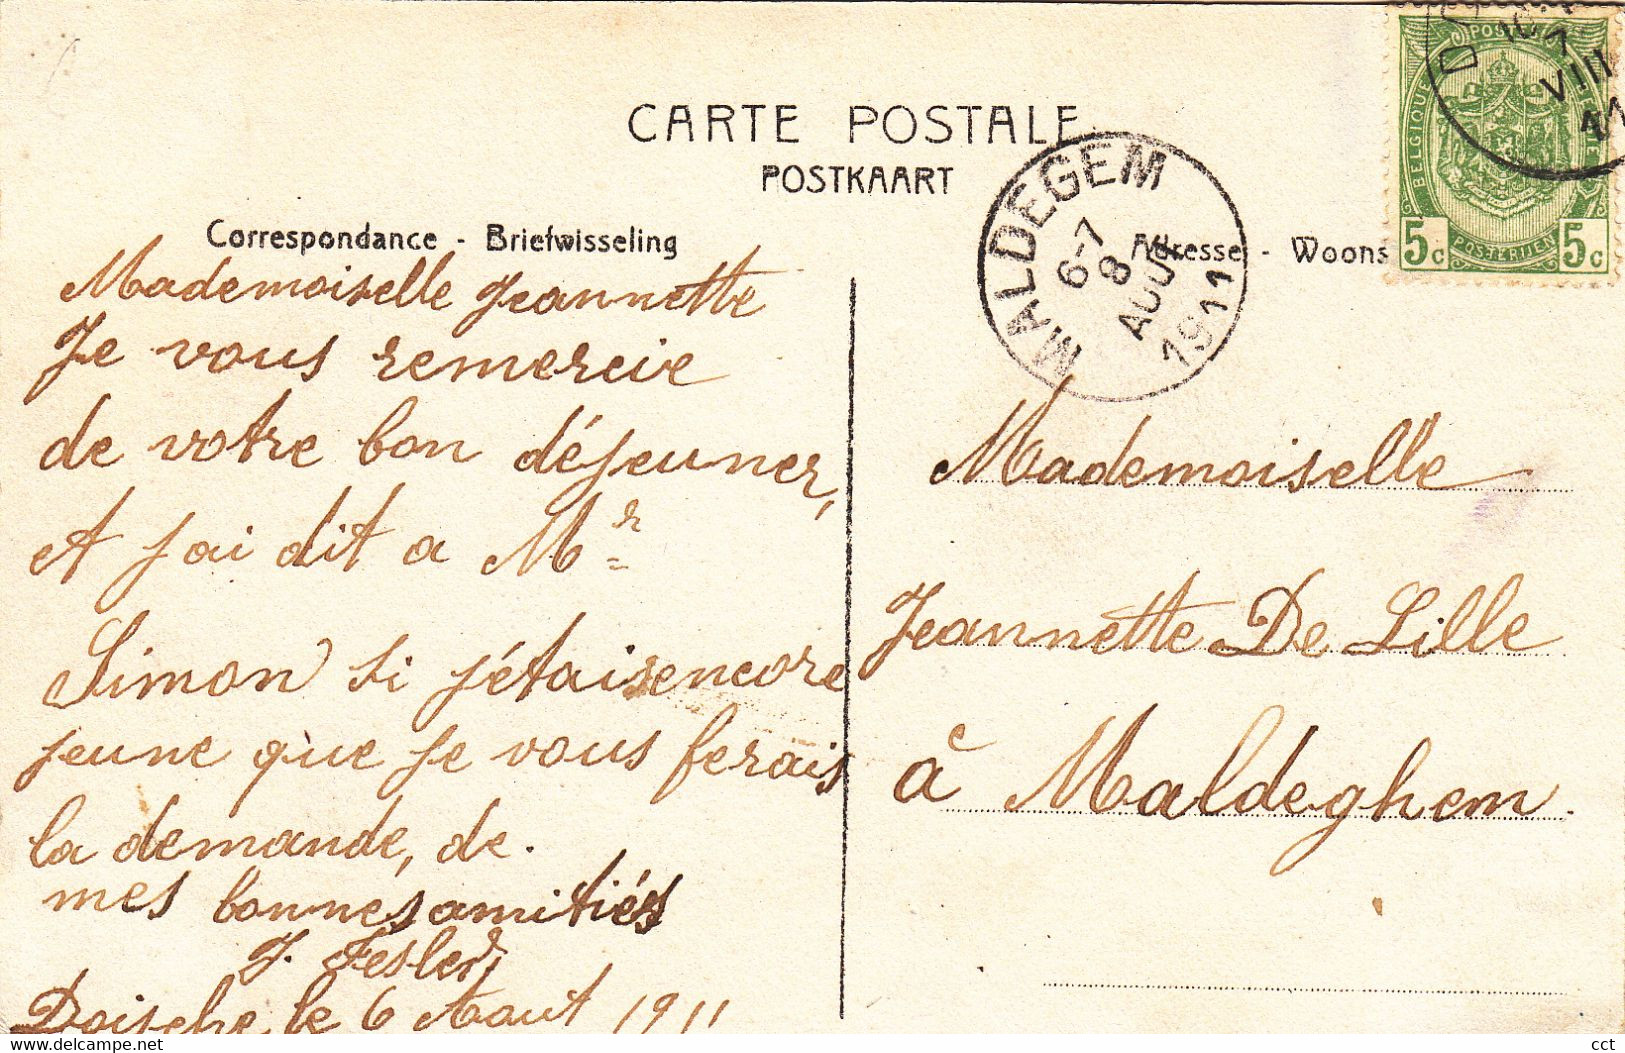 CARTE POSTALE
POSTKAART
Correspondance - Briefwisseling
Adresse - Woons
Mademoiselle Jeannette
Je vous remercie
de votre bon déjeuner,
et j'ai dit a Mr
Simon si j'étais encore
jeune que je vous ferais
la demande, de.
mes bonnes amitiés
J. Fesler
Doische, le 6 Aout 1911
MALDEGEM
6-7
8
AOUT
1911
POSTES
BELGIQUE
5c POSTERIJEN 5c
VIII
Mademoiselle
Jeannette De Lille
à Maldeghem.
www.delcampe.net
cct